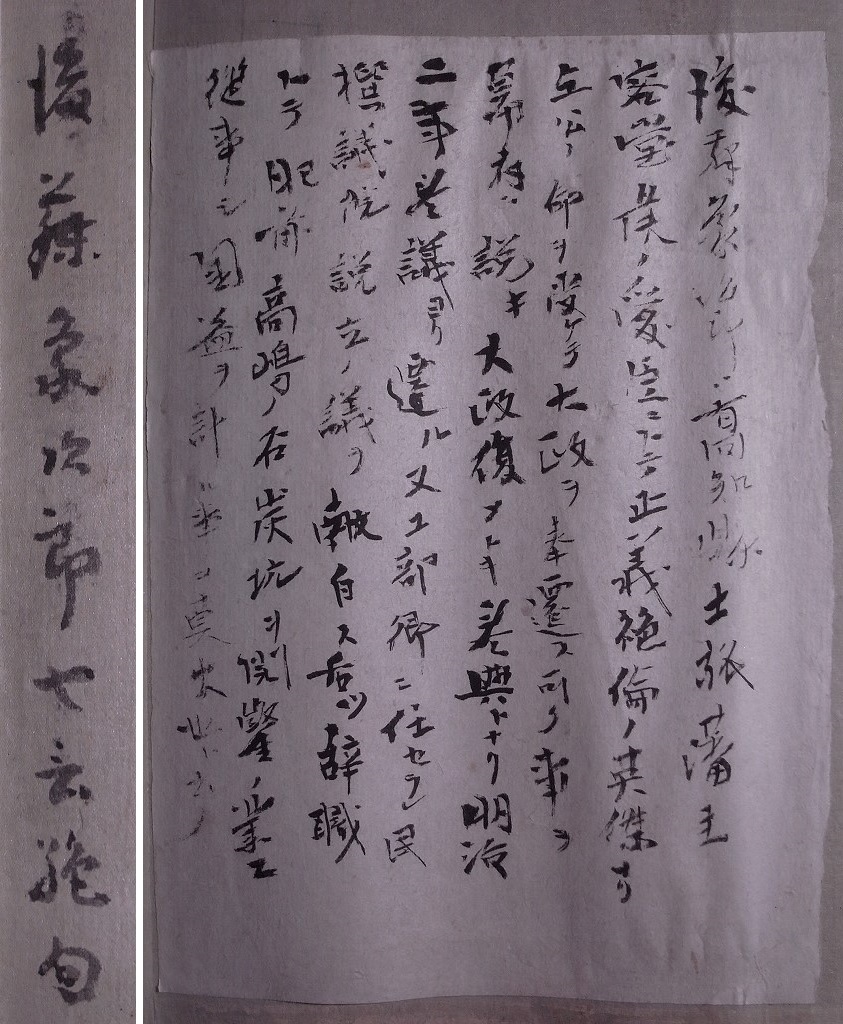 後藤象次郎七言絶句
後藤象次郎ハ高知縣士族藩主
容堂侯ノ愛臣ニシテ正義絶倫ノ英傑ナリ
命ヲ受ケテ大政ヲ奉還ス可ク事ヲ
幕府ニ説キ大政復 参與トナリ明治
二年参議ヨリ遷ル又工部卿ニ任セラレ民
撰議院説立ノ議ヲ献白ス 辞職
シテ肥前高嶋ノ石炭坑ヲ開鑿ノ業ニ
從事シ國益ヲ計ル事ヲ莫大